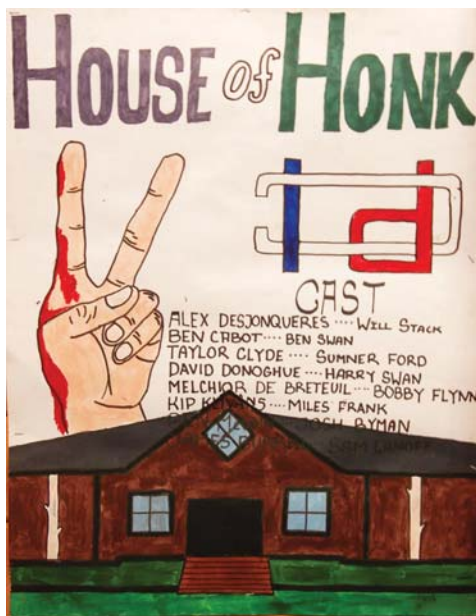 HOUSE of HONK
Id
CAST
ALEX DESJONQUERES .... WILL STACK
BEN CABOT .... BEN SWAN
TAYLOR CLYDE .... SUMNER FORD
DAVID DONOGHUE ... HARRY SWAN
MELCHIOR DE BRETEUIL ... BOBBY FLYNN
KIP ... MILES FRANK
JOSH BYMAN
SAM